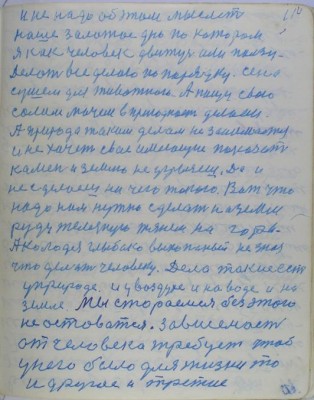 и не надо об этом мыслить
наше золотое дно по котором
я как человек движусь или ползу.
Делат все делово по порядку. Сено
сушем для животного. А пищу свою
солим мочем в пригодност делаим.
А природа таким делам не занимается
и не хочет свае имеющие показат
камен и землю не угрызеш. Да и
не сделаеш ни чего такого. Вот что
надо нам нужно сделат на земли
руду железную тянем на гора.
А колодез глыбако выкопаный не зная
что делат человеку. Дела такие ест
у природе. и у воздухе и на воде и на
земле Мы стораемся без этого
не остоватся. Зависемост
от человека требует чтоб
у него было для жизни то
и другое и третие